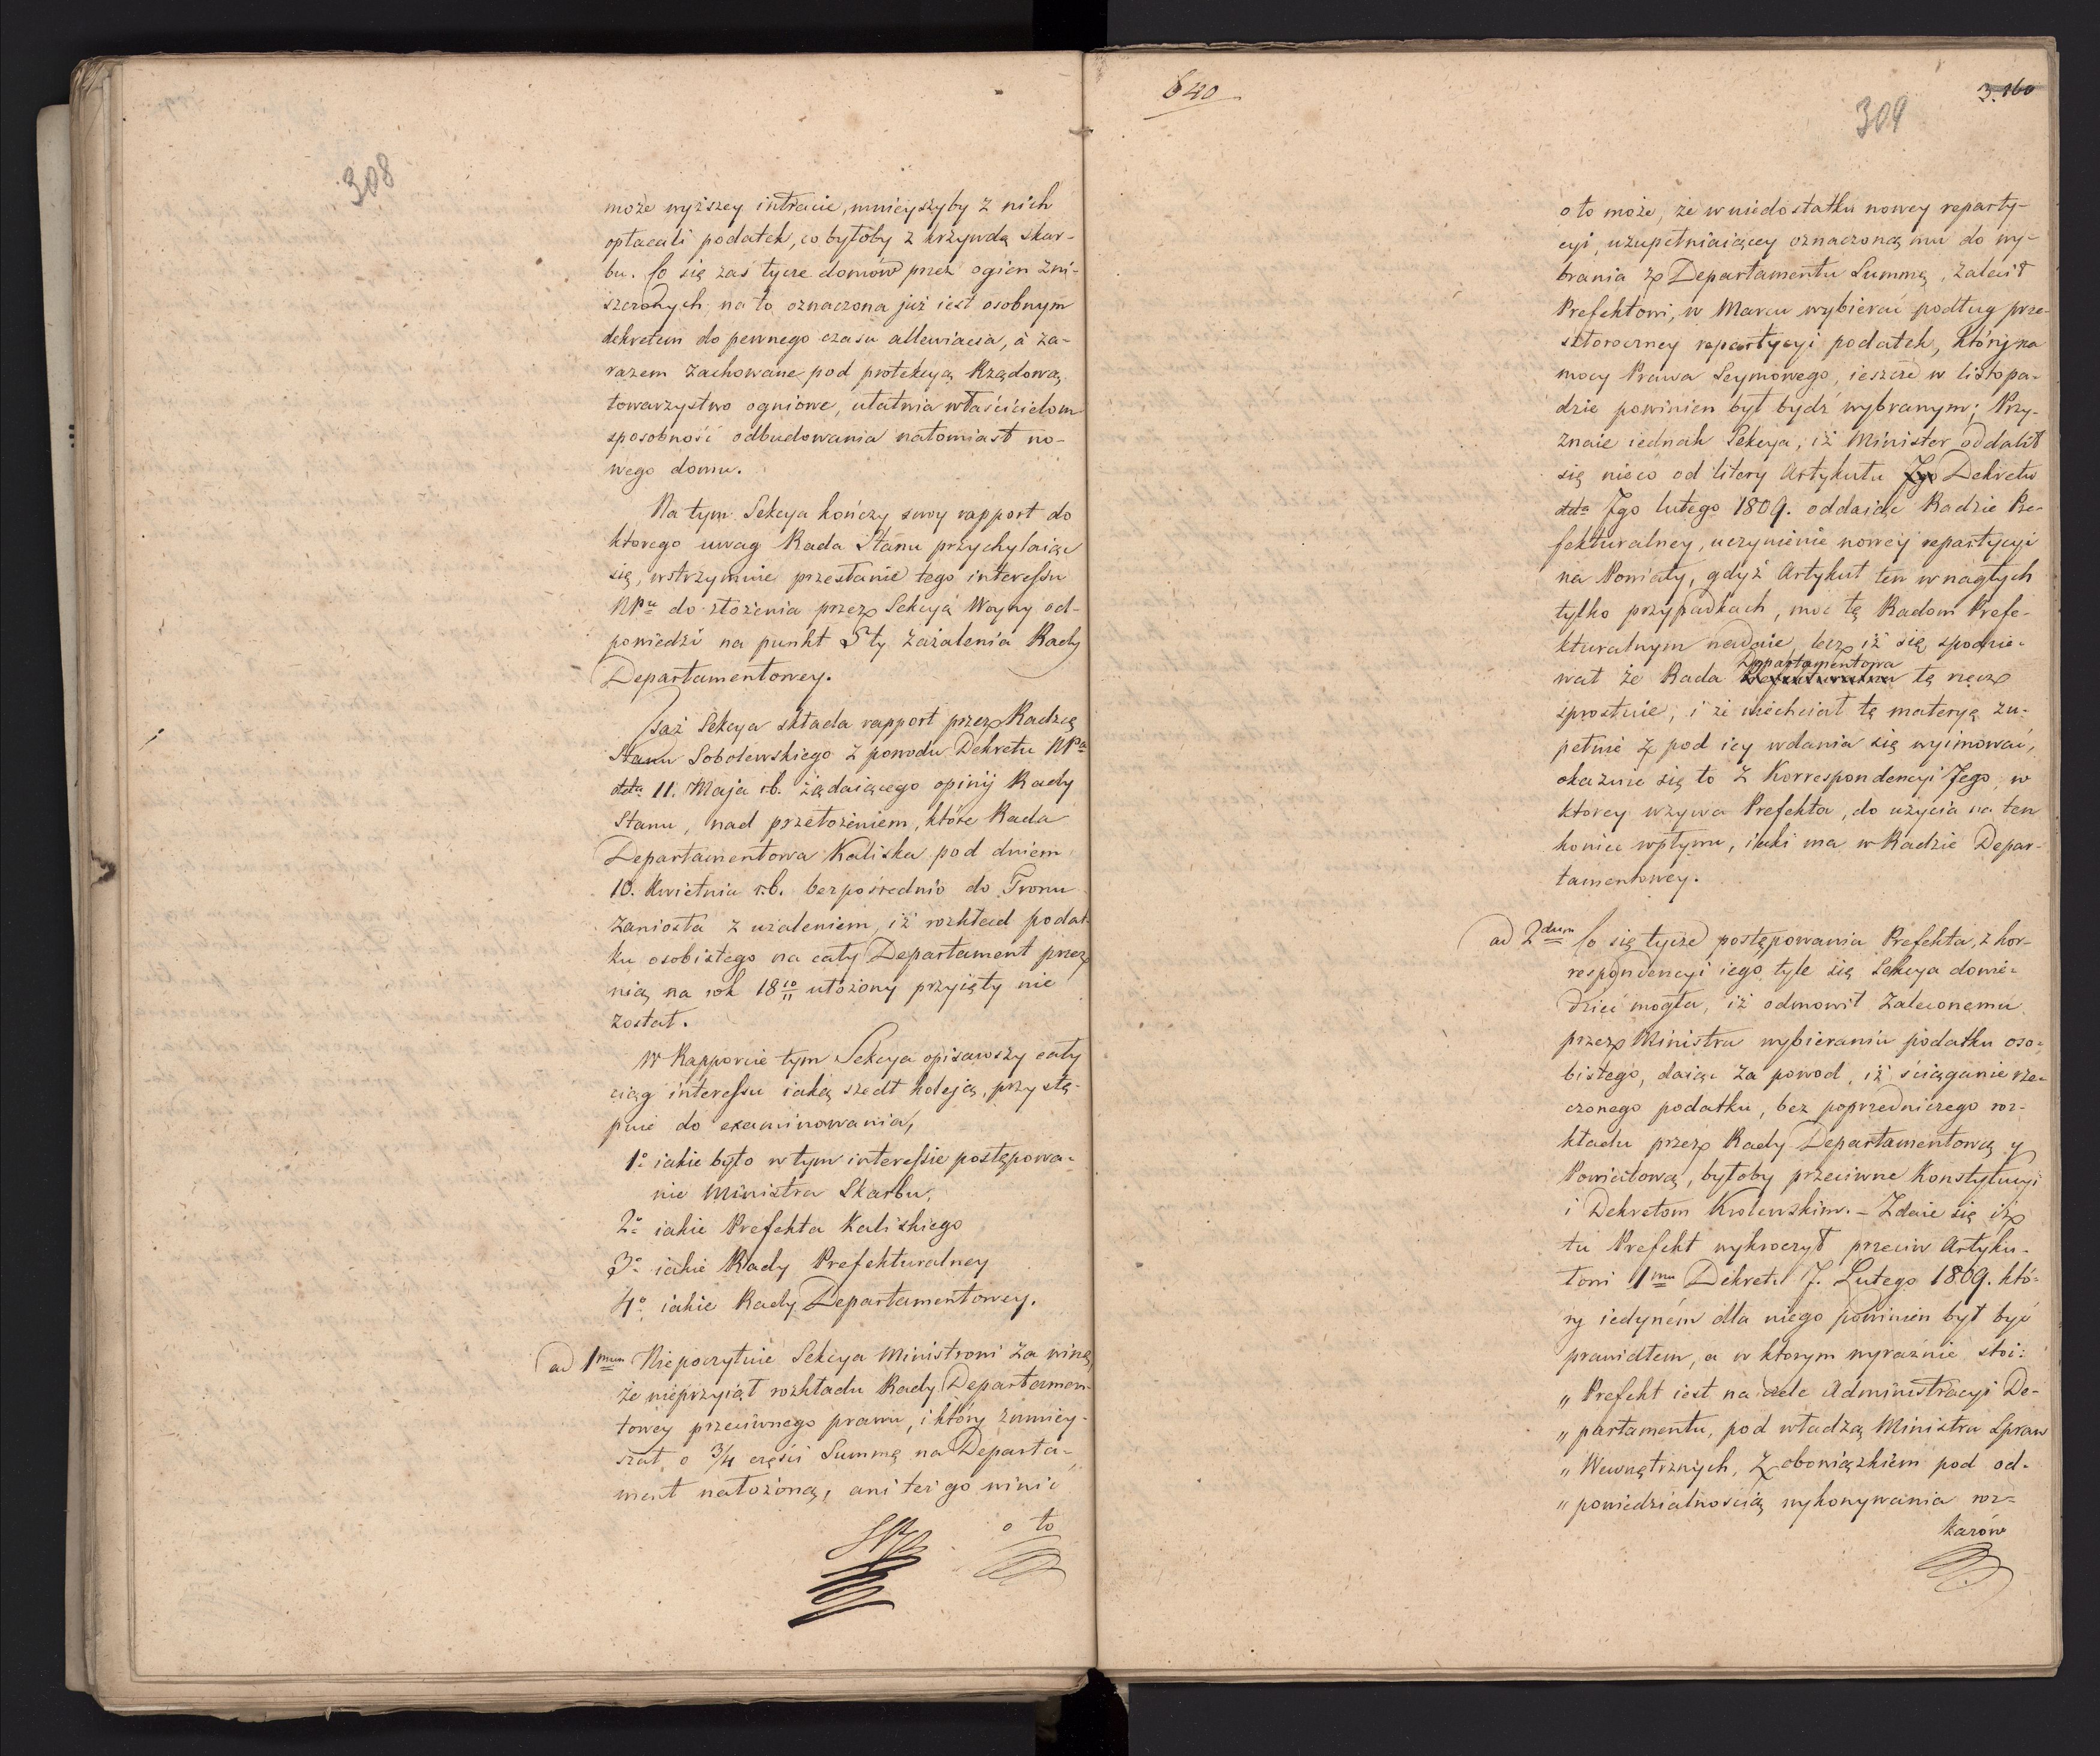 308
może wyższey intracie, mnieyszyby z nich
opłacali podatek, co byłoby z krzywdą Skar-
bu. Co się zaś tycze domów przez ogien zni-
szczonych, na to oznaczona już iest osobnym
dekretem do pewnego czasu allewiacia, à za-
razem zachowane pod protekcyą Rządową
towarzystwo ogniowe, ułatwia właścicielom
sposobność odbudowania natomiast no-
wego domu.
Na tym Sekcya kończy swoy rapport do
ktorego uwag Rada Stanu przychylaiąc
się, wstrzymuie przesłanie tego interessu
NPu do złożenia przez Sekcyą Woyny od-
powiedzi na punkt 5ty zażalenia Rady
Departamentowey.
Taż Sekcya składa rapport przez Radzcę
Stanu Sobolewskiego z powodu Dekretu NPa
dda 11. Maja r.b. żądaiącego opinij Rady
Stanu, nad przełożeniem, które Rada
Departamentowa Kaliska pod dniem
10. Kwietnia r.b. bezpośrednio do Tronu
zaniosła z użaleniem, iż rozkład podat-
ku osobistego na cały Departament przez
nią na rok 18 10/11 ułożony przyięty nie
został.
W Rapporcie tym Sekcya opisawszy cały
ciąg interessu iaką szedł koleją, przystę-
puie do examinowania,
1o iakie było w tym interessie postępowa-
nie Ministra Skarbu,
2o iakie Prefekta Kaliskiego
3o iakie Rady Prefekturalney
4o iakie Rady Departamentowey.
ad 1mum Niepoczytuie Sekcya Ministrowi za winę,
że nieprzyiął rozkładu Rady Departamen-
towey przeciwnego prawu, i który zmniey-
szał o 3/4 części Summę na Departa-
ment nałożoną, ani też go wini
o to
640
309
3.160
o to może, że w niedostatku nowey reparty-
cyi, uzupełniaiącey oznaczoną mu do wy-
brania z Departamentu Summę, zalecił
Prefektowi, w Marcu wybierać podług prze-
szłoroczney repartycyi podatek, który na
mocy Prawa Seymowego, ieszcze w listopa-
dzie powinien był bydź wybranym; Przy-
znaie iednak Sekcya, iż Minister oddalił
się nieco od litery Artykułu 7go Dekretu
dda 7go lutego 1809. oddaiąc Radzie Pre-
fekturalney, uczynienie nowey repartycyi
na Powiaty, gdyż Artykuł ten w nagłych
tylko przypadkach, moc tę Radom Prefe-
kturalnym nadaie lecz iż się spodzie-
wał że Rada Prefekturalna Departamentowa tę rzecz
sprostuie, i że niechciał tę materyą zu-
pełnie z pod iey wdania się wyimować,
okazuie się to z Korrespondencyi Jego, w
ktorey wzywa Prefekta, do użycia na ten
koniec wpływu, iaki ma w Radzie Depar-
tamentowey.
ad 2dum Co się tycze postępowania Prefekta, z kor-
respondencyi iego tyle się Sekcya dowie-
dzieć mogła, iż odmowił zaleconemu
przez Ministra wybieraniu podatku oso-
bistego, daiąc za powod, iż ściąganie rze-
czonego podatku, bez poprzedniczego roz-
kładu przez Rady Departamentową y
Powiatową, byłoby przeciwne Konstytucyi
i Dekretom Krolewskim. – Zdaie się iż
tu Prefekt wykroczył przeciw Artyku-
łowi 1mu Dekretu 7. Lutego 1809. któ-
ry iedyném dla niego powinien był być
prawidłem, a w ktorym wyraźnie stoi:
„ Prefekt iest na czele Administracyi De-
„ partamentu, pod władzą Ministra Spraw
„ Wewnętrznych, z obowiązkiem pod od-
„ powiedzialnością wykonywania roz-
kazów